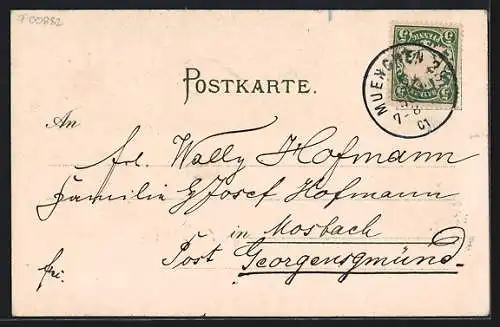 F00882
MUENCHEN 2.B.
7-8
01
POSTKARTE.
An
Frl. Wally Hofmann
Familie Josef Hofmann
in Mosbach
Post Georgensgmünd.
frei.